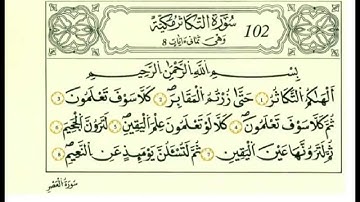 سُورَةُ التَّكَاثُرِ مَكِّيَّةٌ
102
وَهِيَ ثَمَانِي ءَايَاتٍ 8
بِسْمِ اللَّهِ الرَّحْمَٰنِ الرَّحِيمِ
أَلْهَاكُمُ التَّكَاثُرُ ١ حَتَّىٰ زُرْتُمُ الْمَقَابِرَ ٢ كَلَّا سَوْفَ تَعْلَمُونَ ٣
ثُمَّ كَلَّا سَوْفَ تَعْلَمُونَ ٤ كَلَّا لَوْ تَعْلَمُونَ عِلْمَ الْيَقِينِ ٥ لَتَرَوُنَّ الْجَحِيمَ ٦
ثُمَّ لَتَرَوُنَّهَا عَيْنَ الْيَقِينِ ٧ ثُمَّ لَتُسْأَلُنَّ يَوْمَئِذٍ عَنِ النَّعِيمِ ٨
سُورَةُ الْعَصْرِ